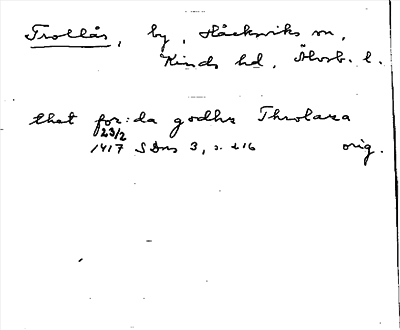 Trollås, by, Håcksviks sn,
Kinds hd, Älvsb. l.
that for:da godhz Throlasa
23/2
1417 SDns 3, s. 216 orig.